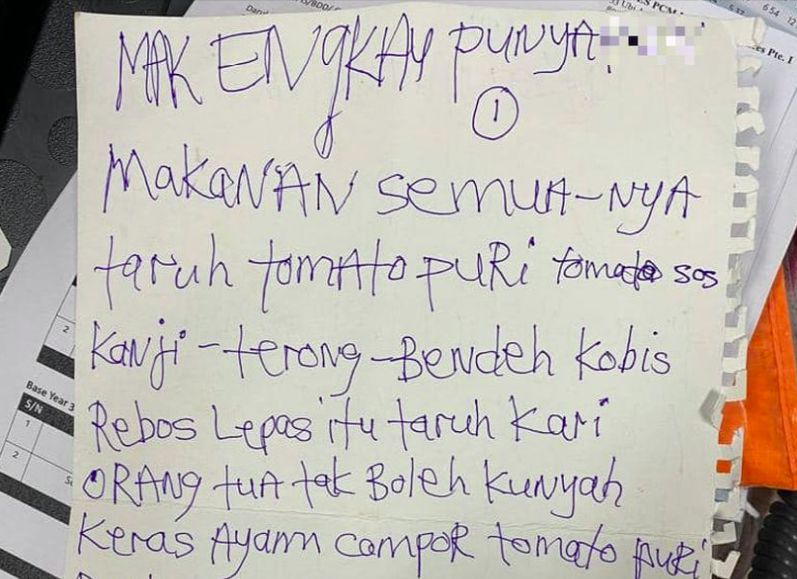 MAK ENgKAY PUNYA
1
MAKANAN SEMUA-NYA
taruh tomAto PURi tomato sos
Kanji-terong-Bendeh Kobis
Rebos Lepas itu taruh Kari
ORANg tuA tak Boleh KUNyah
Keras Ayam campoR tomato puRi
Base Year 3
S/N
1
2
2